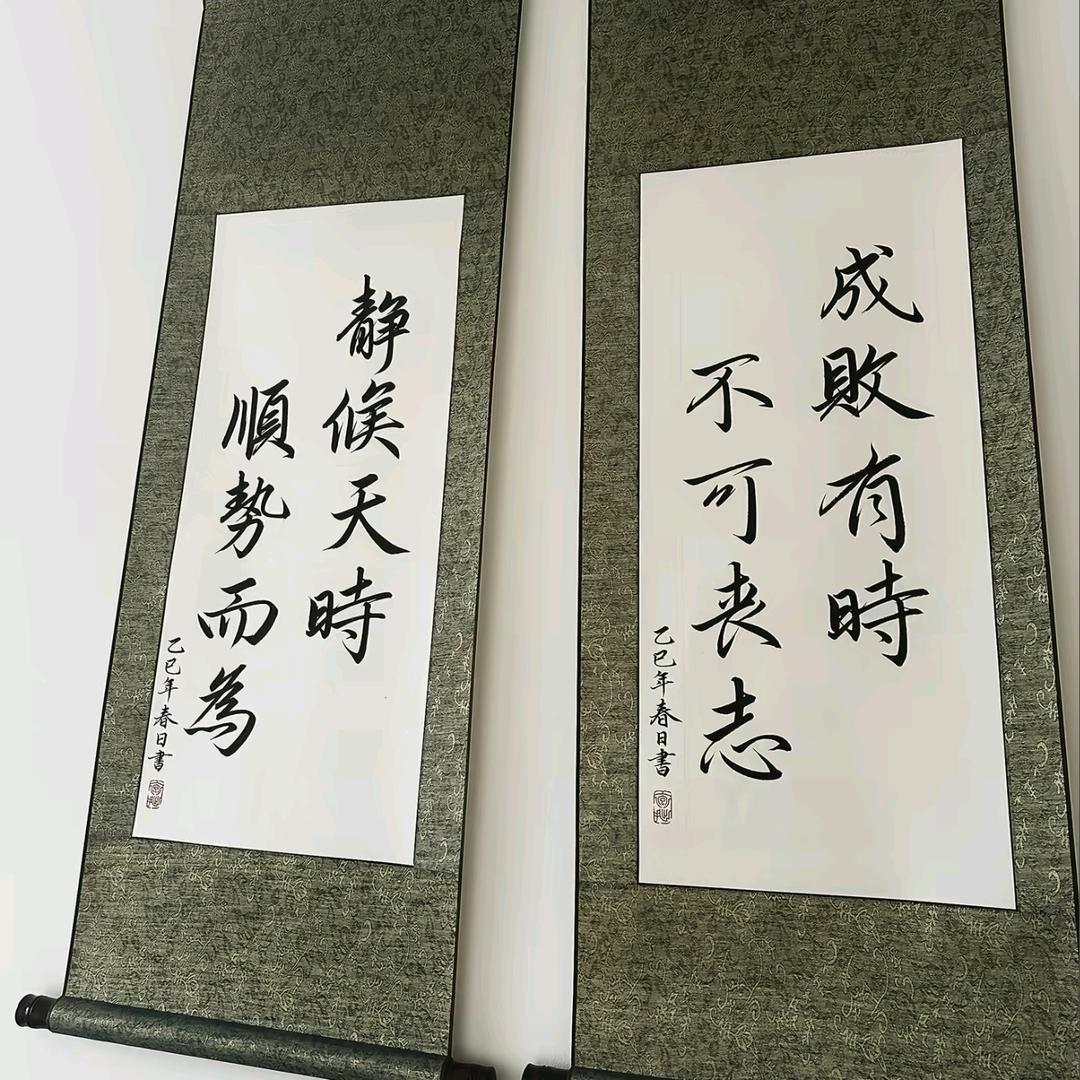 成敗有時
不可丧志
乙巳年春日書
静候天時
順勢而為
乙巳年春日書